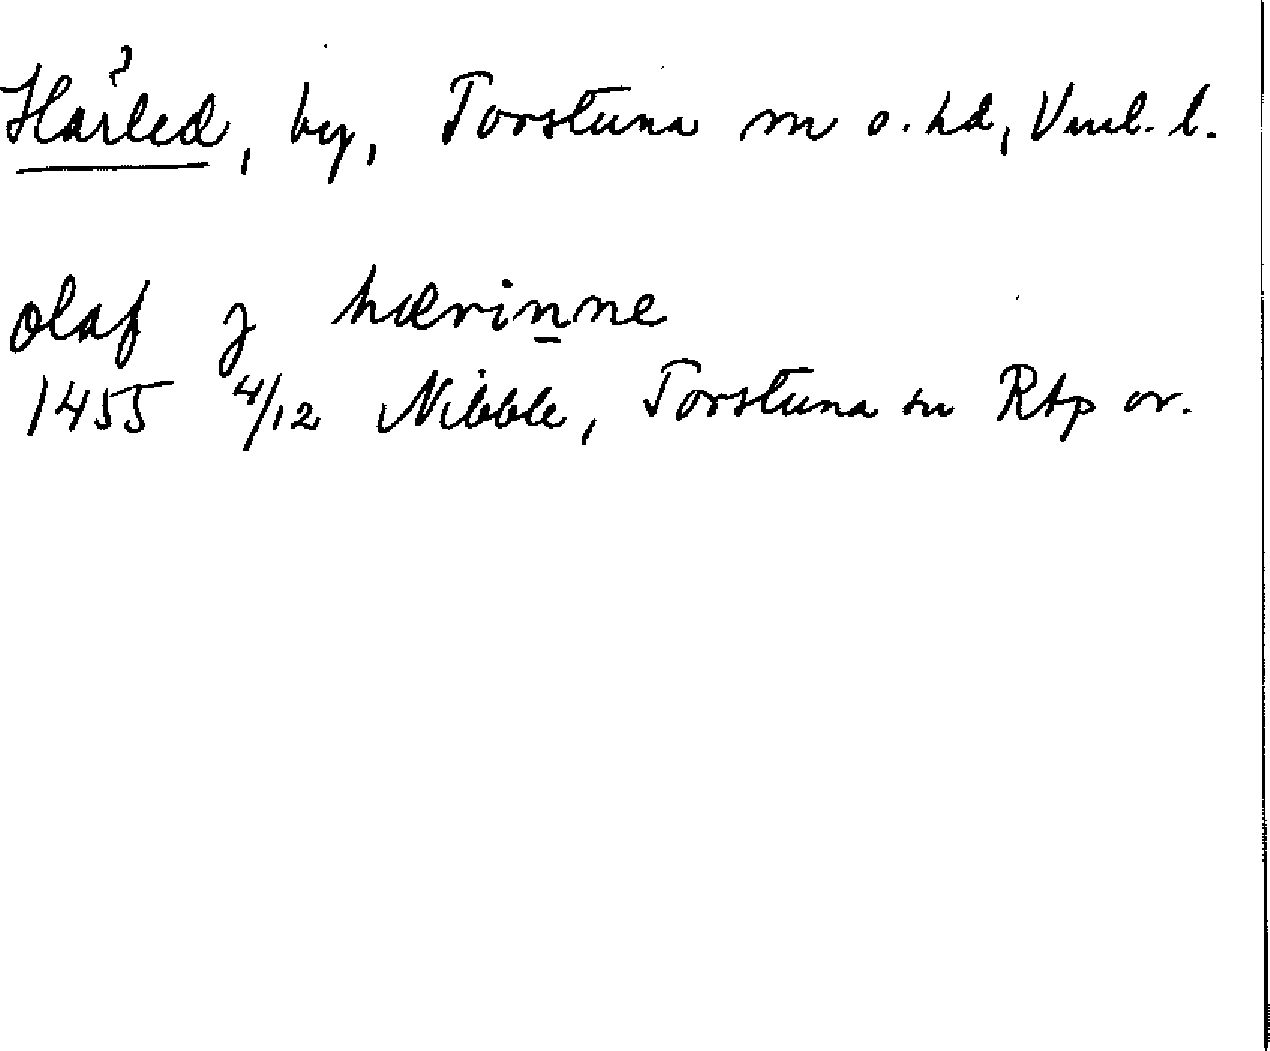 ?
Härled, by, Torstuna sn o. hd, Vml. l.
olaf j hærinne
1455 4/12 Nibble, Torstuna sn RAp or.